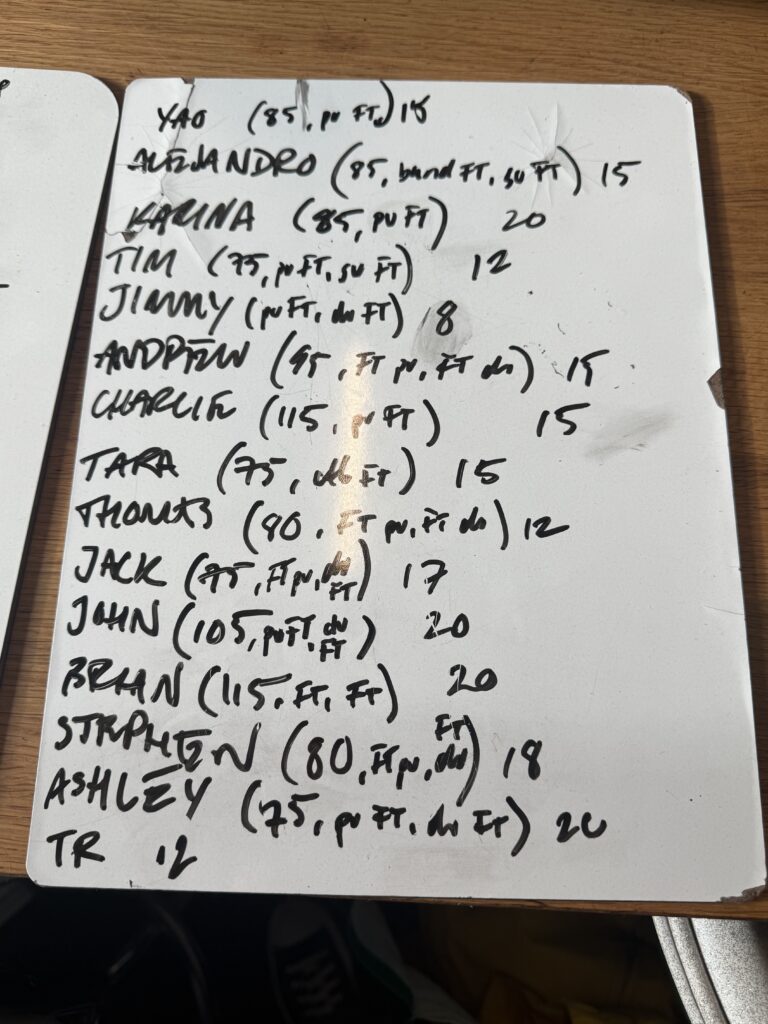 YAO (85, pu FT,) 15
ALEJANDRO (85, band FT, su FT) 15
KARINA (85, pu FT) 20
TIM (75, pu FT, su FT) 12
JIMMY (pu FT, du FT) 8
ANDREW (95, FT pu, FT du) 15
CHARLIE (115, pu FT) 15
TARA (75, FT) 15
THOMAS (80, FT pu, FT du) 12
JACK (75, FT pu, du FT) 17
JOHN (105, pu FT, du FT) 20
BRIAN (115, FT, FT) 20
STEPHEN (80, FT pu, du FT) 18
ASHLEY (75, pu FT, du FT) 20
TR 12